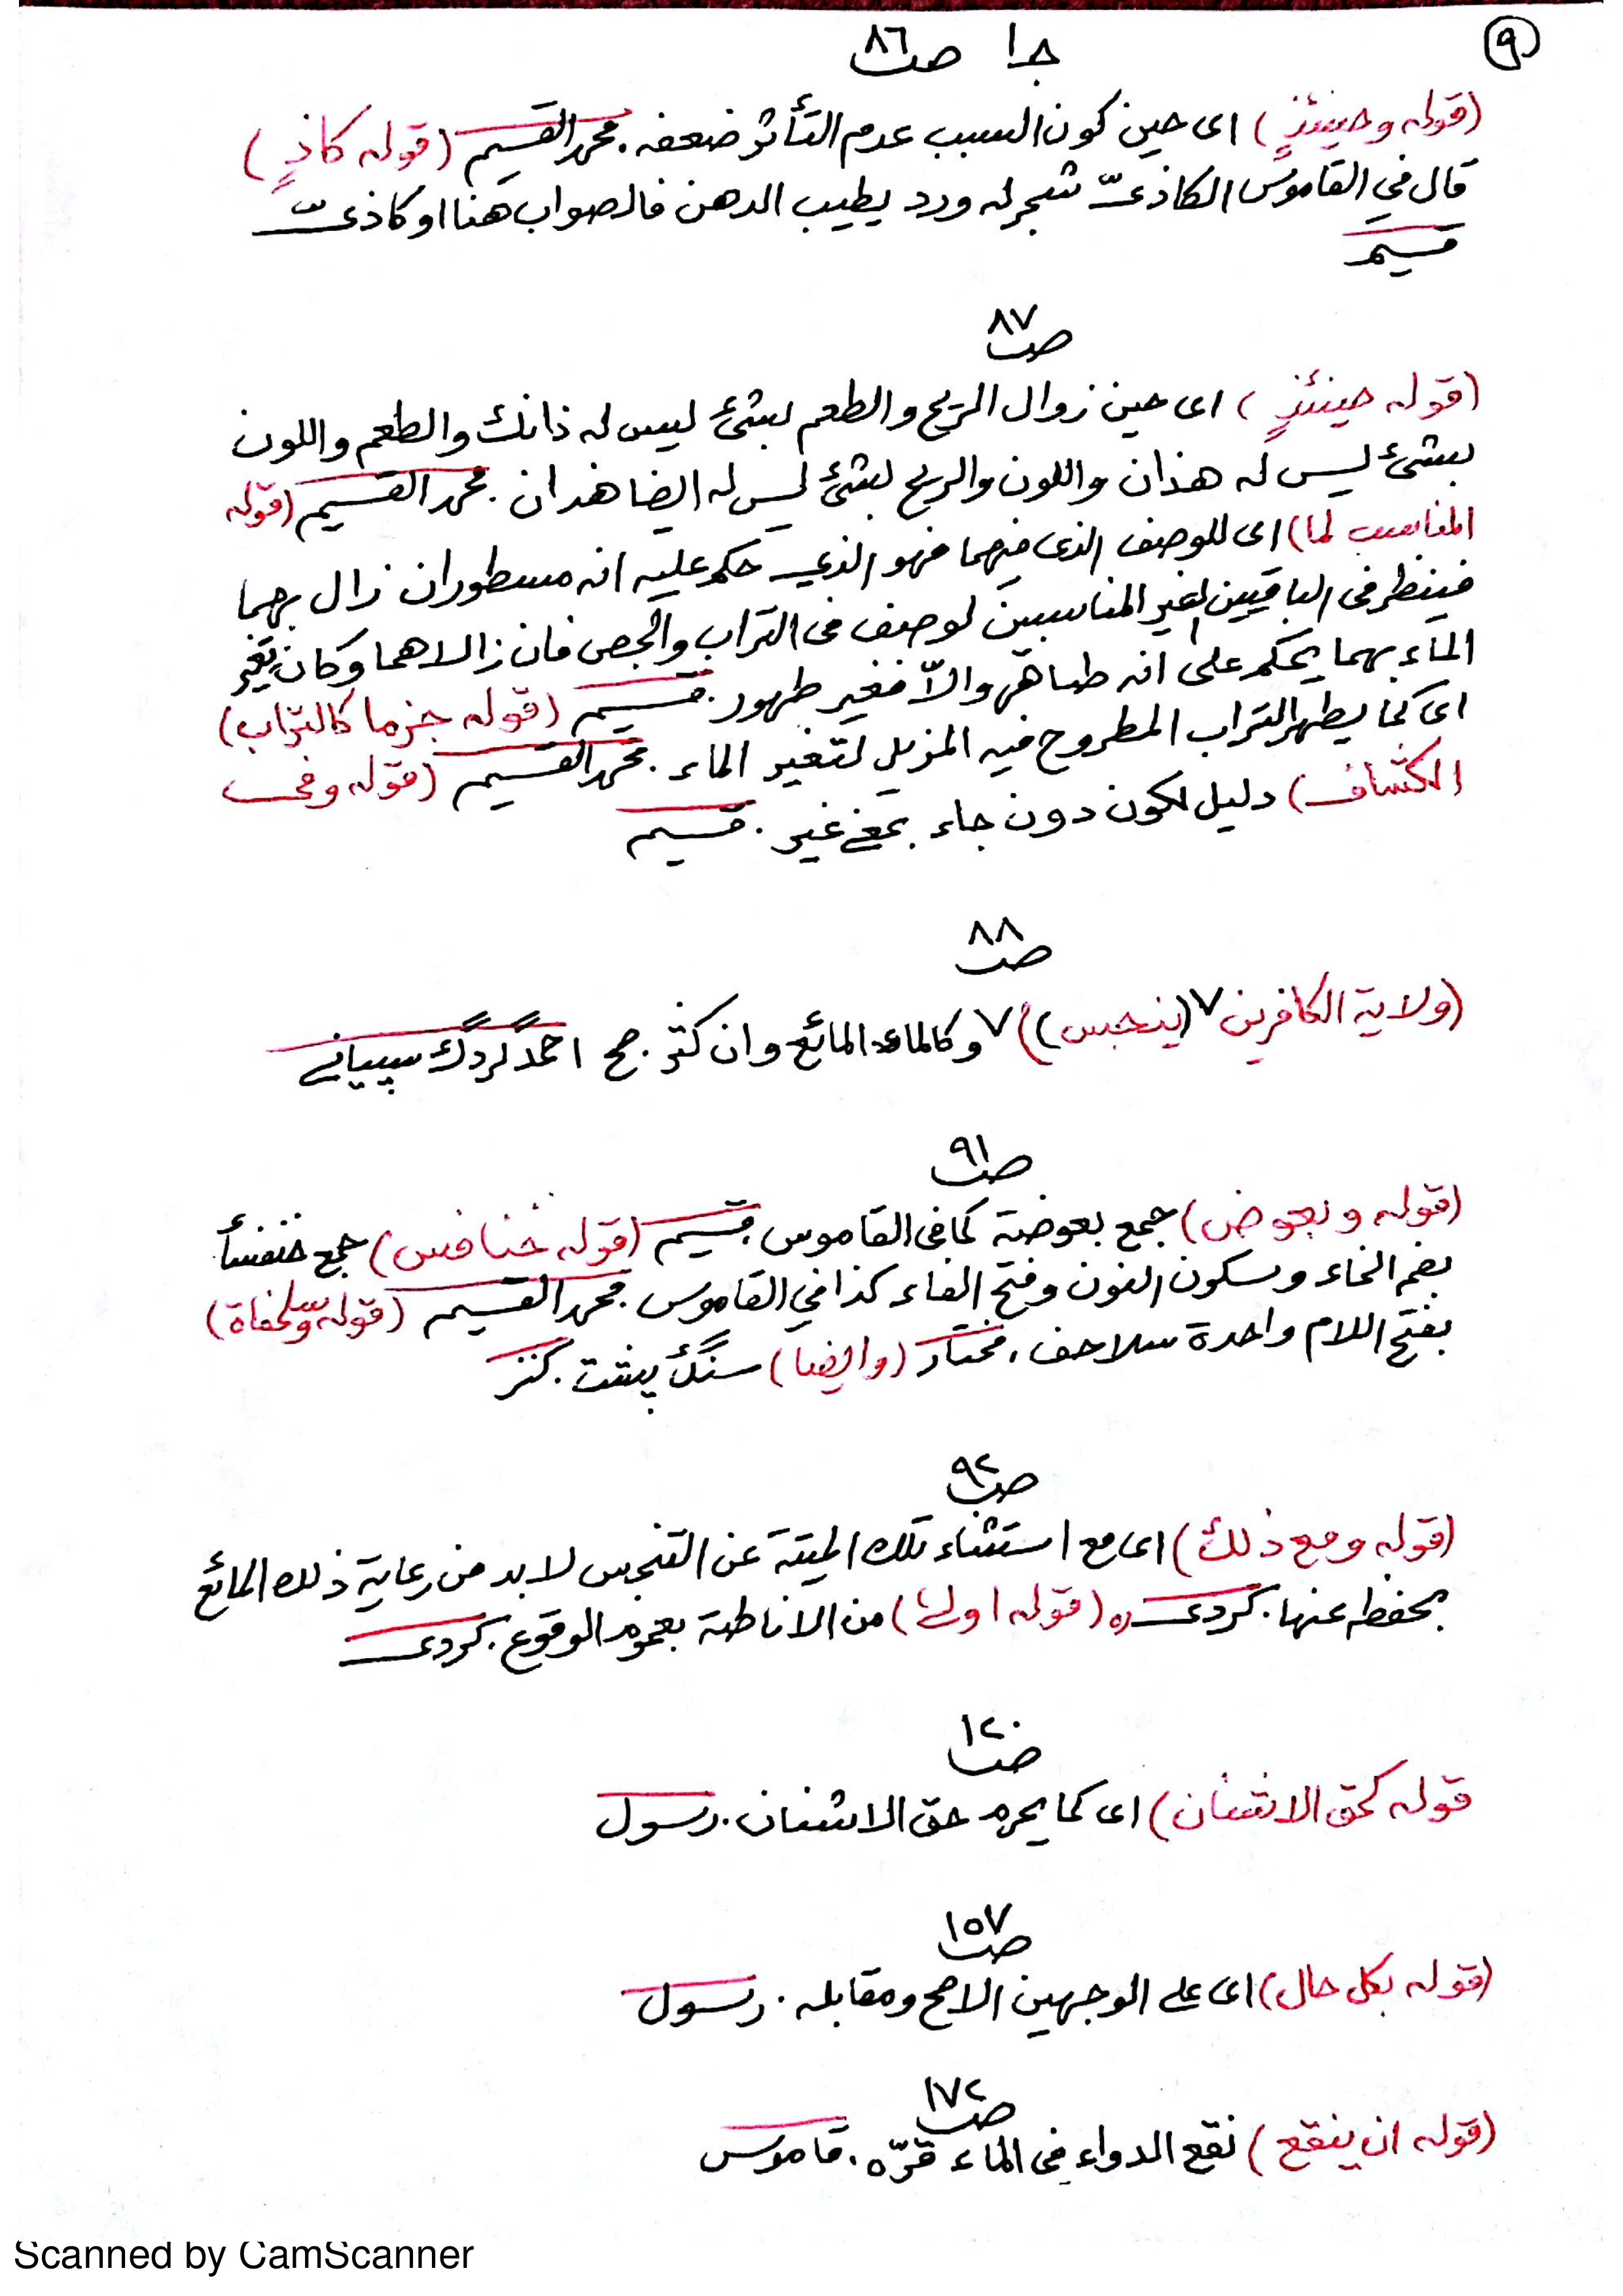 ٩
جـ١ صـ٨٦
(قوله وحينئذٍ) اى حين كون السبب عدم التأثر ضعفه. محمد القسيم (قوله كاذٍ)
قال في القاموس الكاذىّ شجر له ورد يطيب الدهن فالصواب هنا او كاذىّ
قسيم
صـ٨٧
(قوله حينئذٍ) اى حين زوال الريح والطعم بشئ ليس له ذانك والطعم واللون
بشئ ليس له هذان واللون والريح بشئ ليس له ايضا هذان. محمد القسيم (قوله
المناسب لما) اى للوصف الذى فيهما فهو الذي حكم عليه انه مسطوران زال بهما
فينظر فى الباقيين لغير المناسبين لوصف فى التراب والجص فان زالا هما وكان تغير
الماء بهما يحكم على انه طاهر والاّ فغير طهور. قسيم (قوله جزما كالتراب)
اى كما يطهر التراب المطروح فيه المزيل لتغير الماء. محمد القسيم (قوله وفى
الكشاف) دليل لكون دون جاء بمعنى غير. قسيم
صـ٨٨
(ولاية الكافرين ٧ (ينجس)) ٧ وكالماء المائع وان كثر. صح احمد گردگ سپيانى
صـ٩١
(قوله وبعوض) جمع بعوضة كما فى القاموس. قسيم (قوله خنافس) جمع خنفسأ
بضم الخاء وسكون النون وفتح الفاء كذا في القاموس. محمد القسيم (قوله وسلحفاة)
بفتح اللام واحدة سلاحف. مختار (وايضا) سنگ پشت. كنز
صـ٩٢
(قوله ومع ذلك) اى مع استثناء تلك الميتة عن التنجس لا بد من رعاية ذلك المائع
بحفظه عنها. كردى ره (قوله اولى) من الاناطة بعموم الوقوع. كردى
صـ١٢٠
قوله كحق الاشنان) اى كما يحرم حق الاشنان. رسول
صـ١٥٧
(قوله بكل حال) اى على الوجهين الاصح ومقابله. رسول
صـ١٧٢
(قوله ان ينقع) نقع الدواء فى الماء قرّه. قاموس
Scanned by CamScanner